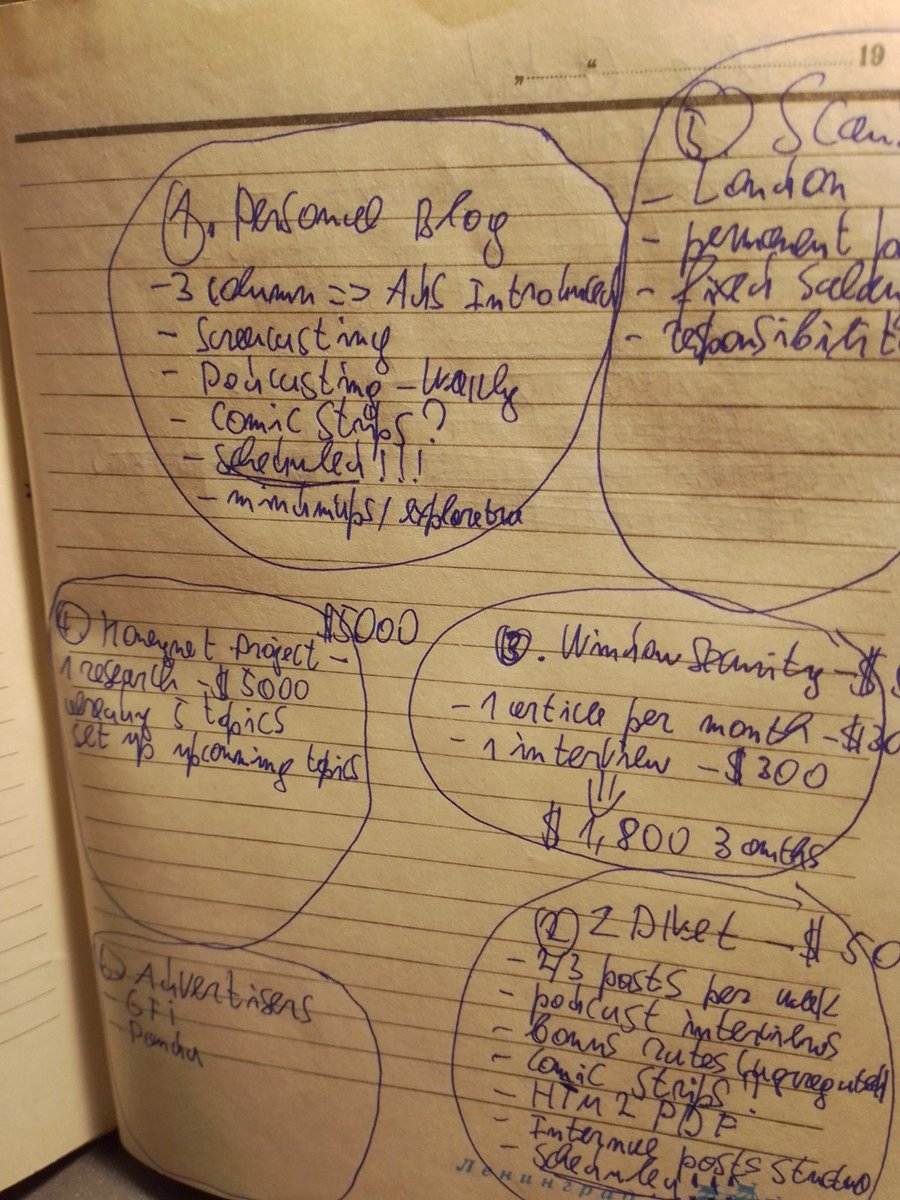 „........“ ........ 19
1. Personal Blog
- 3 column => Ads Introduced
- Screencasting
- Podcasting - Weekly
- Comic Strips ?
- scheduled!!!
- mindmaps/
5 Scan
- London
- permanent
- fixed
- responsibilit
4. Honeynet Project - $5000
1 research - $5000
already 5 topics
set up upcomming topics
3. Window Security - $
- 1 article per month - $30
- 1 interview - $300
$1,800 3 omths
6. Advertisers
- GFi
- Panda
2 ZDNet - $50
- 2/3 posts per week
- podcast interviews
- Bonus rates
- Comic Strips
- HTM 2 PDF
- posts
- scheduled!!!
Ленинград